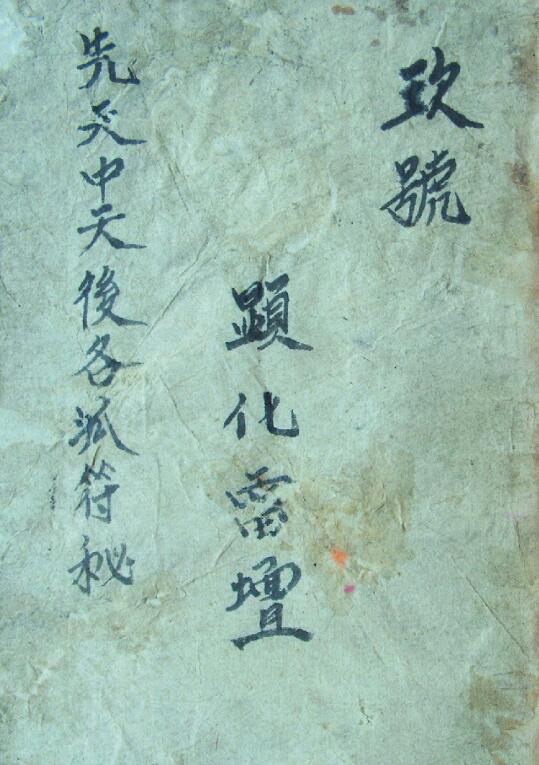 玖號
顕化雷壇
先天中天後各派符秘